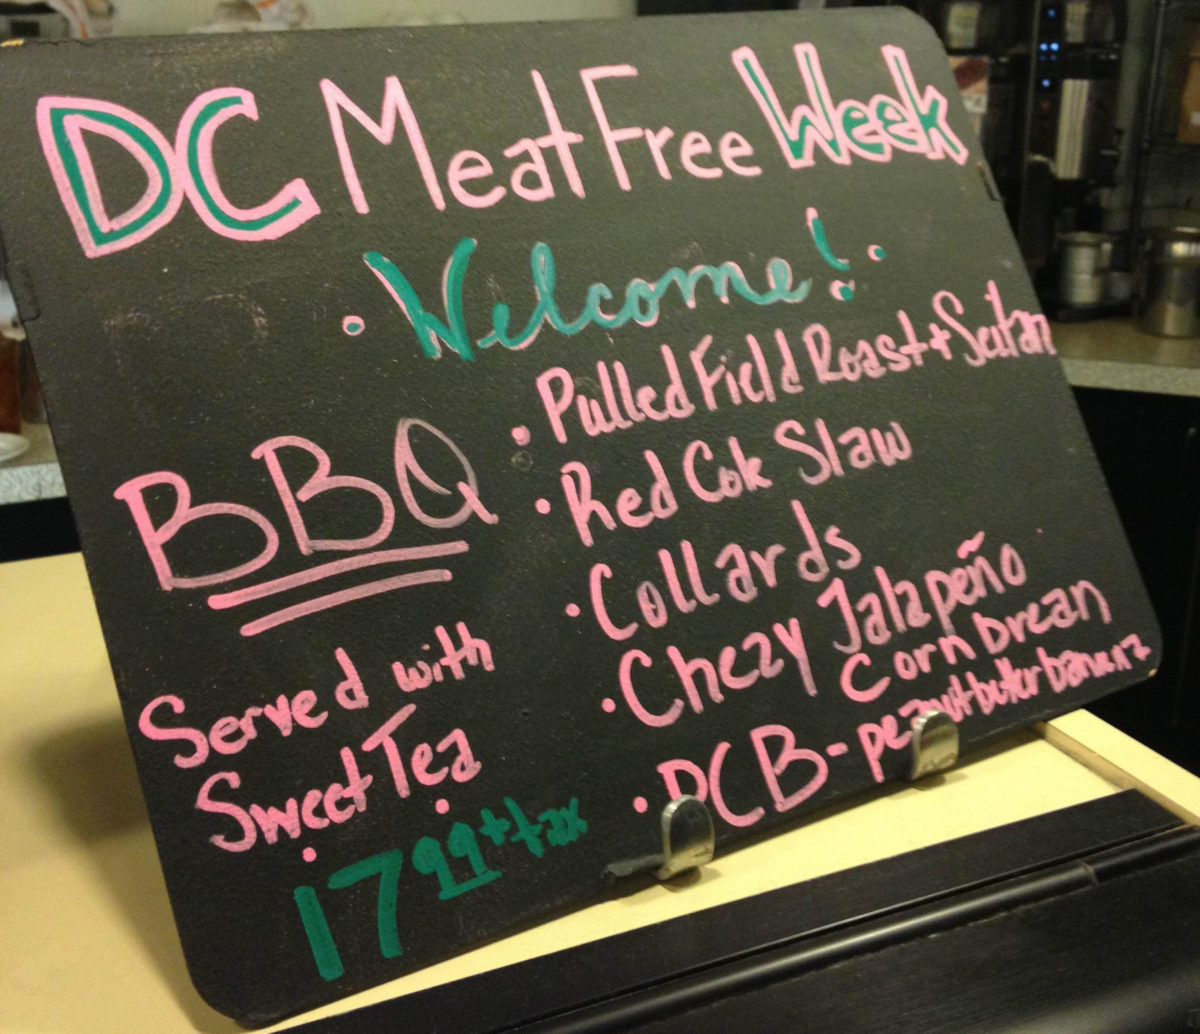 DC Meat Free Week
• Welcome! •
BBQ
• Pulled Field Roast + Seitan
• Red Cole Slaw
• Collards
• Chezy Jalapeño
Corn brean
• PCB - peanutbutter bananaz
Served with
Sweet Tea
• 17 99 + tax •